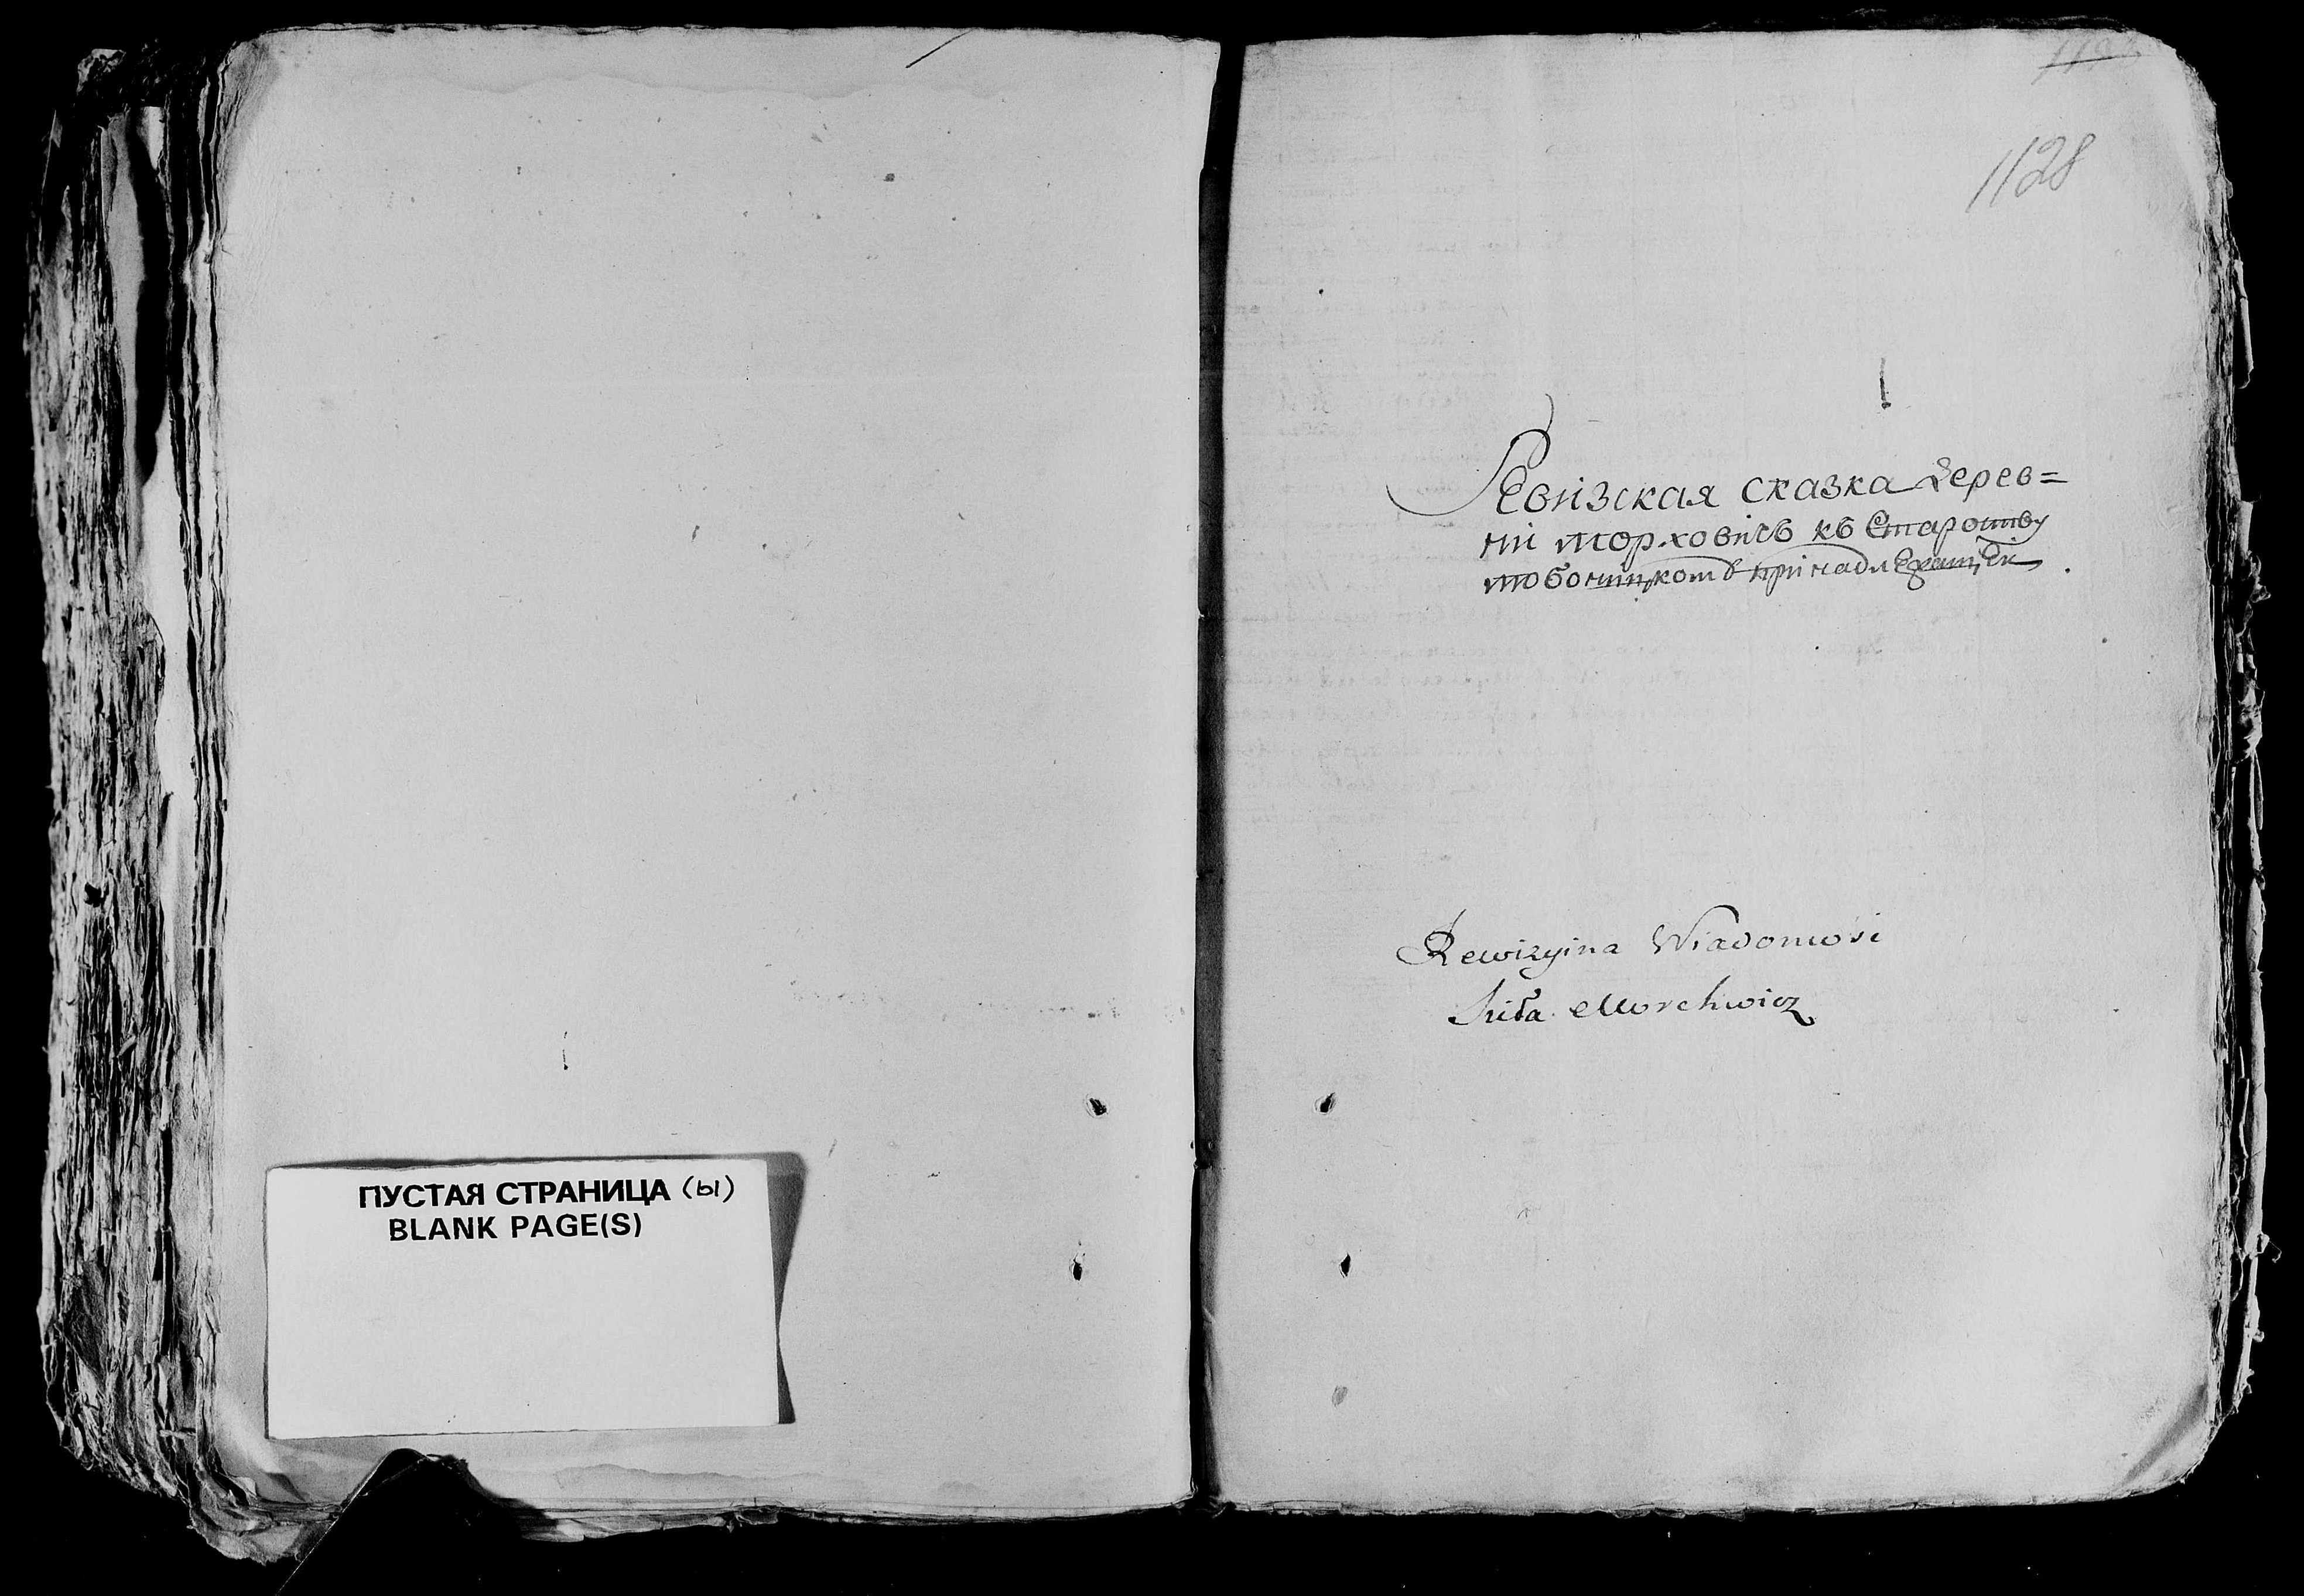 ПУСТАЯ СТРАНИЦА (ы)
BLANK PAGE(S)
1128
Ревизская сказка дерев=
ни морховичь къ Староству
принадлежащей
Rewizyina Wiadomosc
Morchwicz